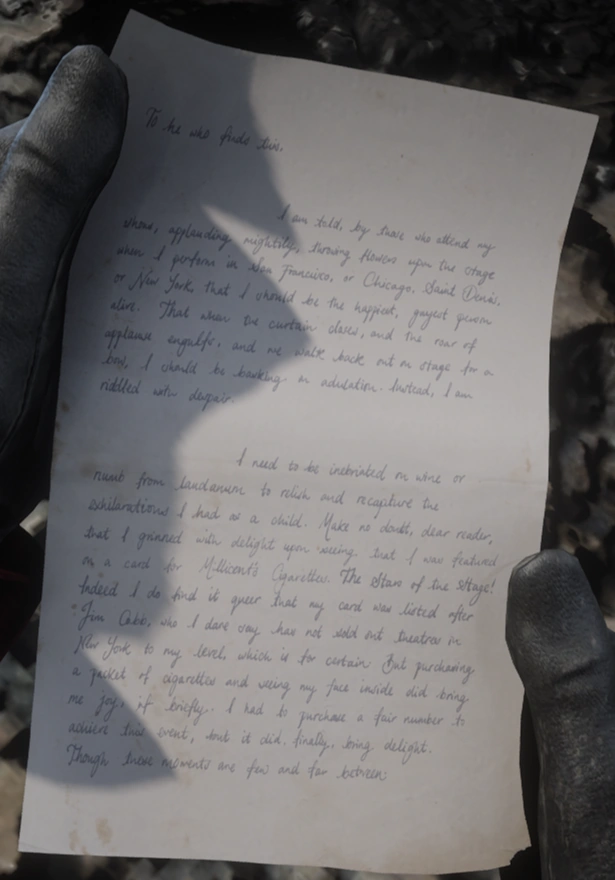 To he who finds this,
I am told, by those who attend my
shows, applauding mightily, throwing flowers upon the stage
when I perform in San Francisco, or Chicago, Saint Denis,
or New York, that I should be the happiest, gayest person
alive. That when the curtain closes, and the roar of
applause engulfs, and we walk back out on stage for a
bow, I should be basking in adulation. Instead, I am
riddled with despair.
I need to be inebriated on wine or
numb from laudanum to relish and recapture the
exhilarations I had as a child. Make no doubt, dear reader,
that I grinned with delight upon seeing that I was featured
on a card for Millicent's Cigarettes. The Stars of the Stage!
Indeed I do find it queer that my card was listed after
Jim Cobb, who I dare say has not sold out theatres in
New York to my level, which is for certain. But purchasing
a packet of cigarettes and seeing my face inside did bring
me joy, if briefly. I had to purchase a fair number to
achieve this event, but it did, finally, bring delight.
Though these moments are few and far between: